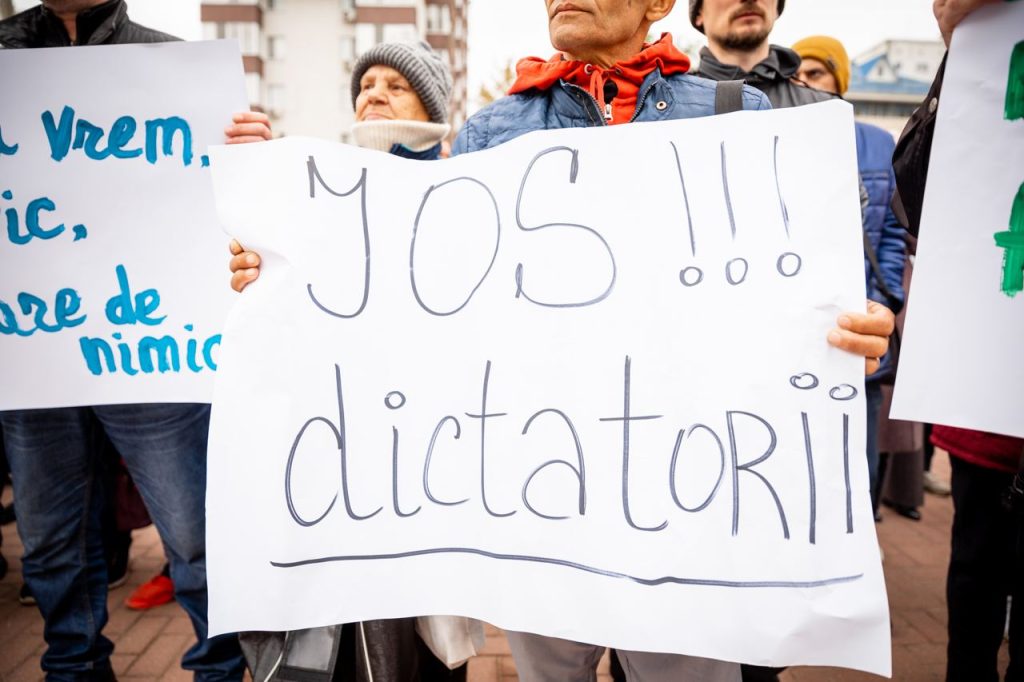 vrem,
ic,
are de
nimic
JOS!!!
dictatorii